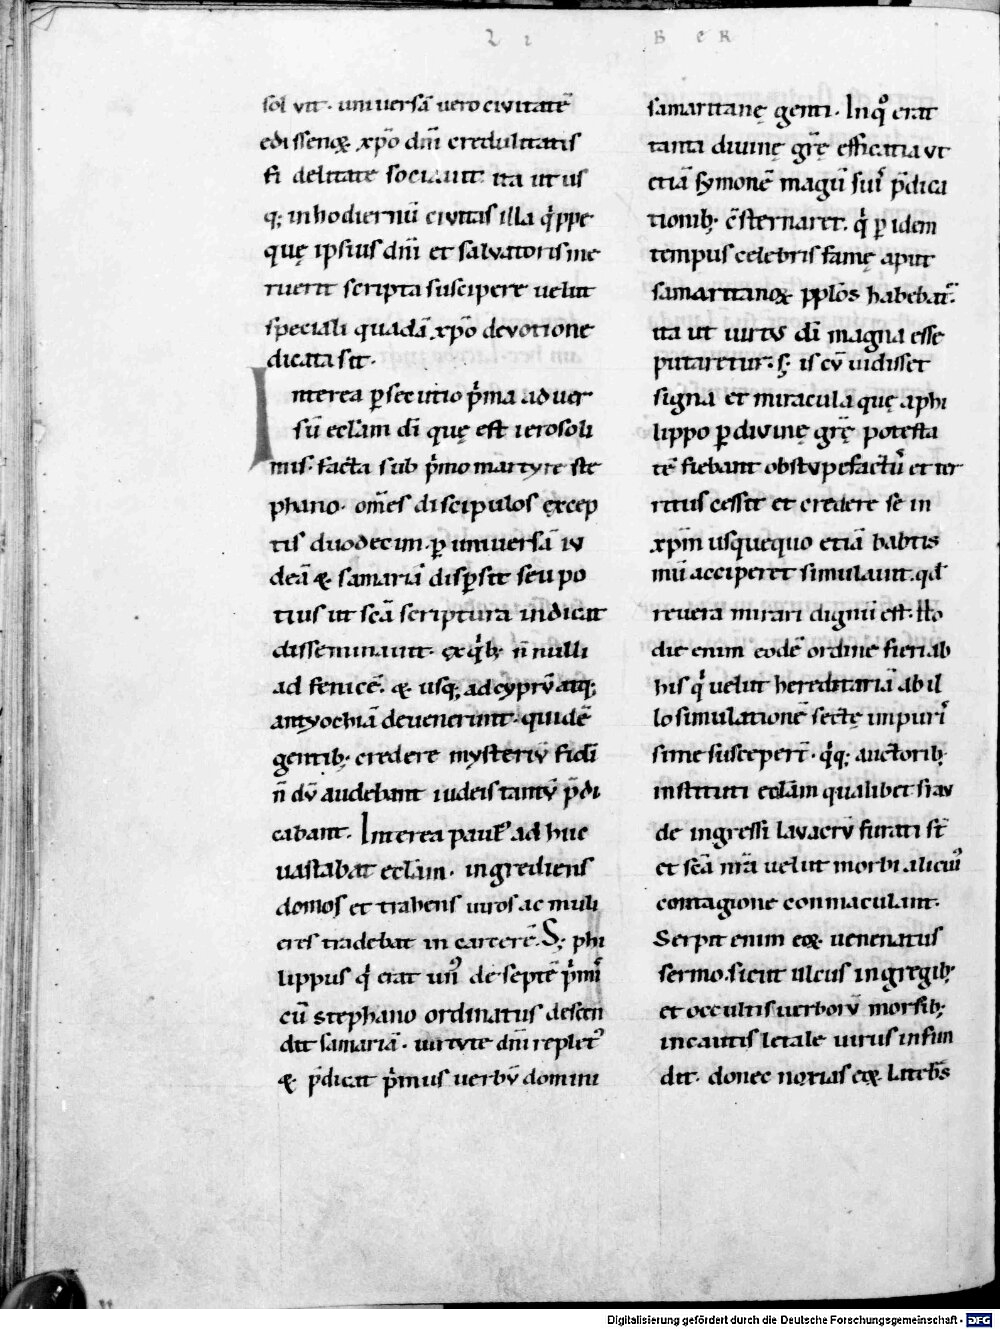 LI BER
sol vit· uniuersā uero ciuitatē
edissenoꝝ xp̄o dn̄i credulitatis
fi delitate sociauit· ita ut us
q; inhodiernū ciuitas illa qͥppe
quę ipsius dn̄i et saluatoris me
ruerit scripta suscipere uelut
speciali quadā xp̄o deuotione
dicata sit·
Interea ꝑsecutio pͥma aduer
sū eccl̄am dī quę est ierosoli
mis· facta sub pͥmo martyre ste
phano· om̄es discipulos excep
tis duodecim· ꝑ uniuersā iu
deā & samariā disꝑsit seu po
tius ut scā scriptura indicat
disseminauit· ęx qͥb; n̄ nulli
ad fenicē· & usq; ad cyprū atq;
antyochiā deuenerunt· quidē
gentib; credere mysteriū fidei
n̄ dū audebant iudeis tantū p̄di
cabant· Interea paul᷒ ad huc
uastabat eccl̄am· ingrediens
domos et trahens uiros ac muli
eres tradebat in carcerē· S; phi
lippus qͥ erat un᷒ de septē pͥmiͥ
cū stephano ordinatus descen
dit samariā· uirtute dn̄i replet᷒
& p̄dicat pͥmus uerbū domini
samaritanę genti· Inqͦ erat
tanta diuinę gr̄ę efficatia ut
etiā symonē magū suiͥ p̄dica
tionib; c̄sternaret· qͥ ꝑ idem
tempus celebris famę aput
samaritanoꝝ pp̄los habebat᷒
ita ut uirtus dī magna esse
putaretur· s; is cū uidisset
signa et miracula quę a phi
lippo ꝑ diuinę gr̄ę potesta
tē fiebant obstupefactū et ter
ritus cessit et credere se in
xp̄m usquequo etiā babtis
mū acciperet simulauit· qd̄
reuera mirari dignū est· Ho
die enim eodē ordine fieri ab
his qͥ uelut hereditariā ab il
lo simulationē sectę impuriͥ
sime susceperт̄· qͥq; auctorib;
instituti eccl̄am qualibet frau
de ingressi lauacrū furati st̄
et scā nr̄a uelut morbi alicui᷒
contagione conmaculant·
Serpit enim eoꝝ uenenatus
sermo sicut ulcus in gregib;
et occultis uerborū morsib;
incautis letale uirus infun
dit· donec noxias eoꝝ latebs̄
Digitalisierung gefördert durch die Deutsche Forschungsgemeinschaft - DFG